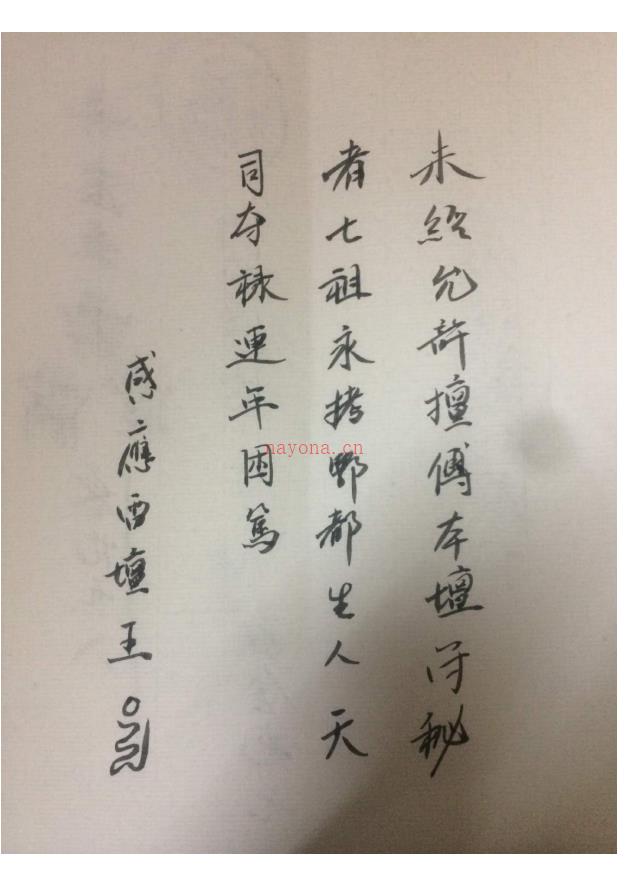 未經允許擅傳本壇符秘
者七祖永拷酆都生人天
司夺禄連年困篤
感應西壇王
nayona.cn